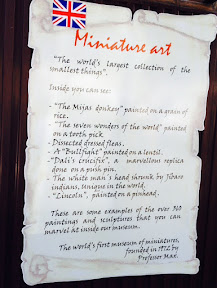 Miniature art
"The world's largest collection of the
smallest things".
Inside you can see:
- "The Mijas donkey" painted on a grain of
rice.
- "The seven wonders of the world" painted
on a tooth pick.
- Dissected dressed fleas.
- A "Bullfight" painted on a lentil.
- "Dali's crucifix", a marvellous replica
done on a push pin.
- The white man's head shrunk by Jibaro
indians, unique in the world.
- "Lincoln", painted on a pinhead.
These are some examples of the over 360
paintings and sculptures that you can
marvel at inside our museum.
The world's first museum of miniatures,
founded in 1972 by
Professor Max.